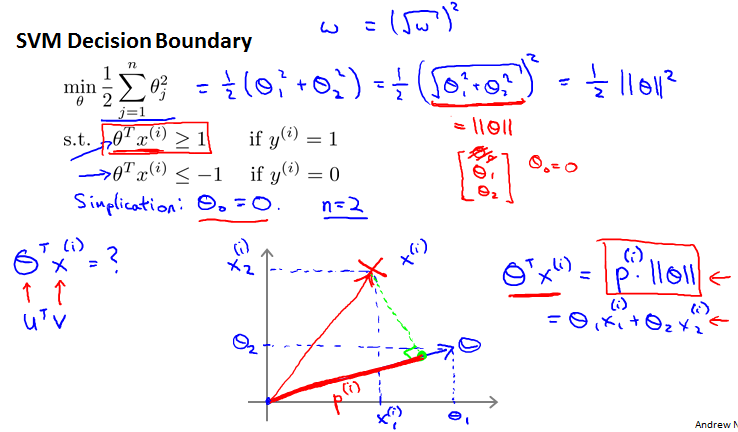 ω = (√ω)²
SVM Decision Boundary
min_θ 1/2 ∑_{j=1}^{n} θ_j² = 1/2 (θ₁² + θ₂²) = 1/2 (√(θ₁² + θ₂²))² = 1/2 ||θ||²
= ||θ||
s.t. θᵀx⁽ⁱ⁾ ≥ 1 if y⁽ⁱ⁾ = 1
→ θᵀx⁽ⁱ⁾ ≤ −1 if y⁽ⁱ⁾ = 0
[θ₁ θ₂] θ₀=0
Simplication: θ₀ = 0. n=2
θᵀx⁽ⁱ⁾ = ?
↑ ↑
uᵀv
x₂⁽ⁱ⁾
x⁽ⁱ⁾
θ₂
θ
p⁽ⁱ⁾
x₁⁽ⁱ⁾
θ₁
θᵀx⁽ⁱ⁾ = p⁽ⁱ⁾ · ||θ|| ←
= θ₁x₁⁽ⁱ⁾ + θ₂x₂⁽ⁱ⁾ ←
Andrew N